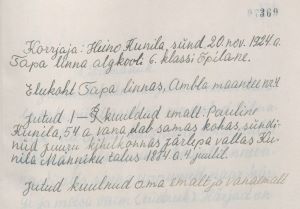 97369
Korjaja: Heino Kunila, sünd. 20. nov. 1924 a.
Tapa linna algkooli 6. klassi õpilane.
Elukoht Tapa linnas, Ambla maantee nr. 4
Jutud 1– kuuldud emalt: Pauline
Kunila, 54 a. vana, elab samas kohas, sündi-
nud juuru kihelkonnas Järlepa vallas Ku-
nila Männiku talus 1884 a. 4. juulil.
Jutud kuulnud oma emalt ja vanaemalt